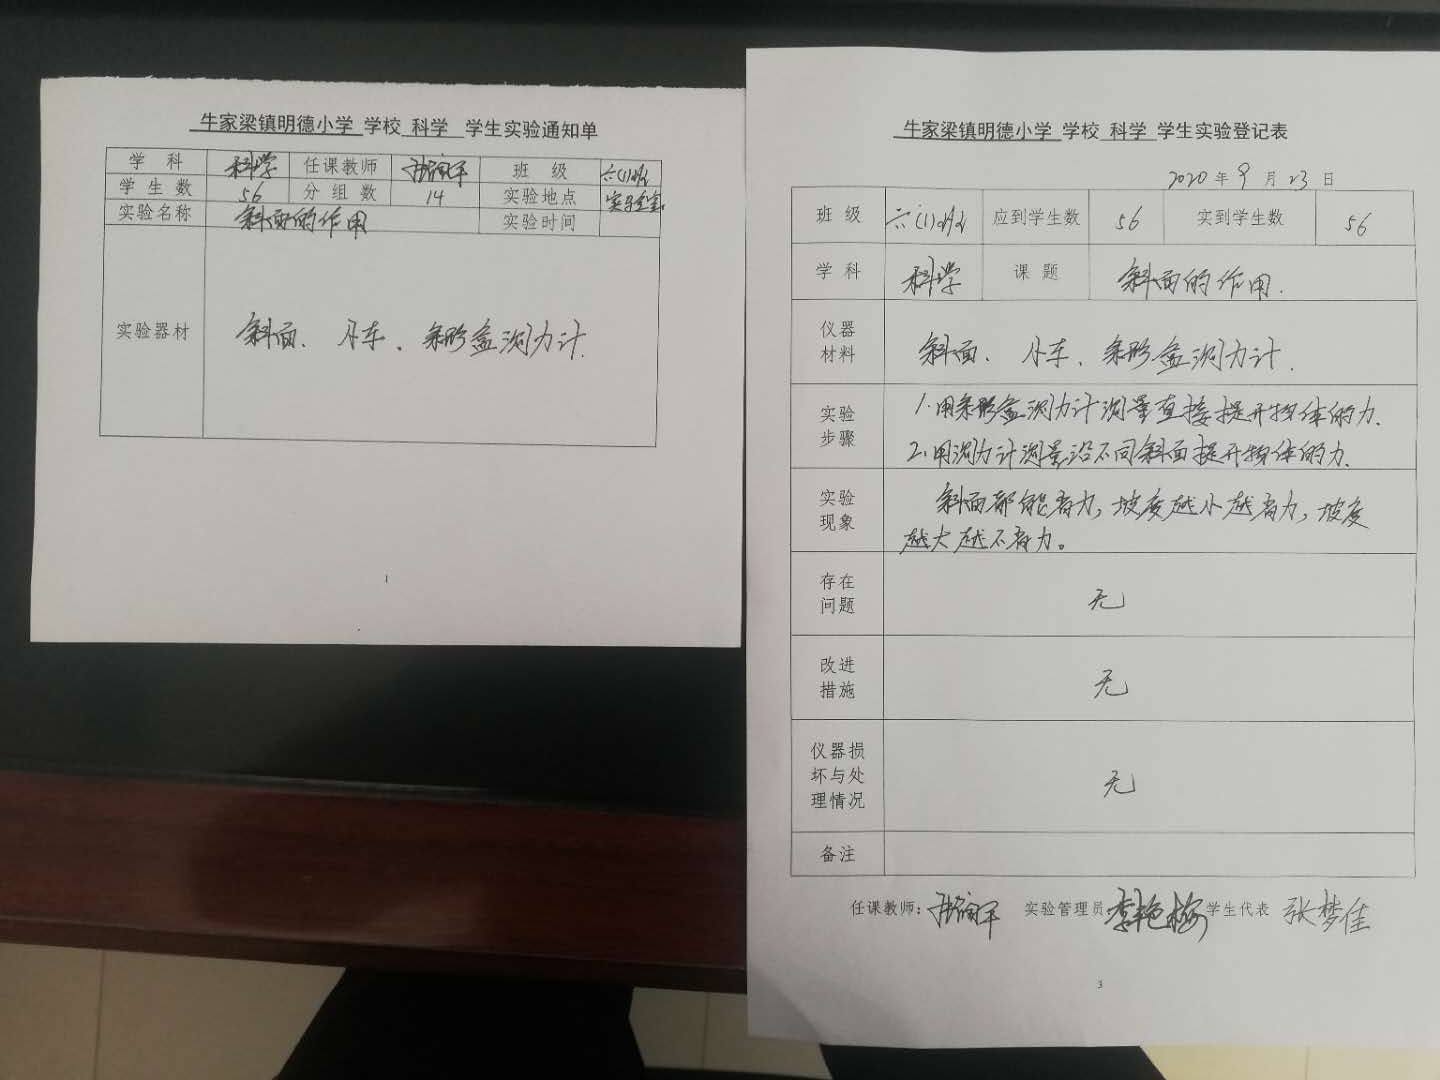 牛家梁镇明德小学 学校 科学 学生实验通知单
学 科 科学 任课教师 班 级 六(1)班
学 生 数 56 分 组 数 14 实验地点 实验室
实验名称 斜面的作用 实验时间
实验器材 斜面、小车、条形盒测力计.
1
牛家梁镇明德小学 学校 科学 学生实验登记表
2020 年 9 月 23 日
班 级 六(1)班 应到学生数 56 实到学生数 56
学 科 科学 课 题 斜面的作用.
仪器
材料
斜面、小车、条形盒测力计.
实验
步骤
1.用条形盒测力计测量直接提升物体的力.
2.用测力计测量沿不同斜面提升物体的力.
实验
现象
斜面都能省力,坡度越小越省力,坡度
越大越不省力。
存在
问题
无
改进
措施
无
仪器损
坏与处
理情况
无
备注
任课教师: 实验管理员 李艳梅 学生代表 张梦佳
3